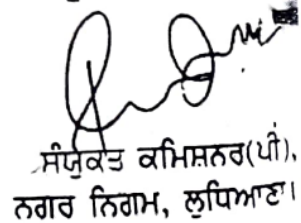 ਸੰਯੁਕਤ ਕਮਿਸ਼ਨਰ(ਪੀ),
ਨਗਰ ਨਿਗਮ, ਲੁਧਿਆਣਾ।